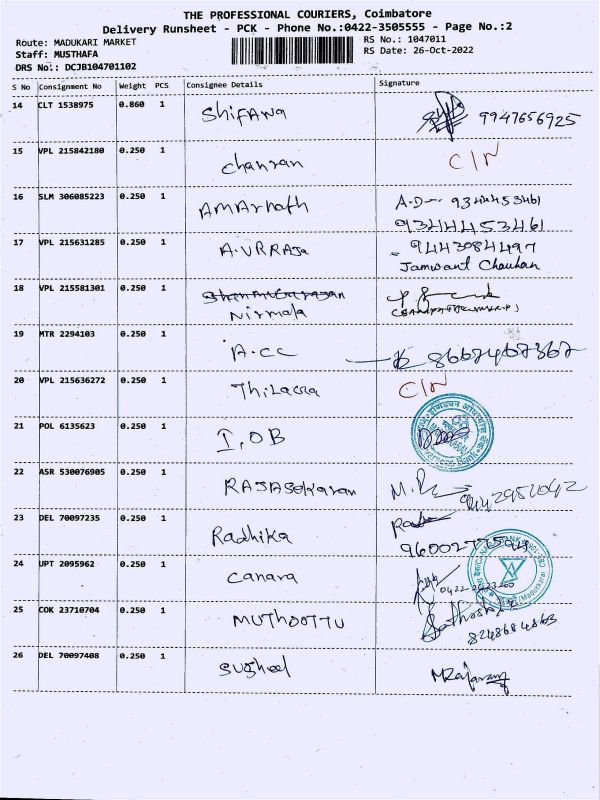 THE PROFESSIONAL COURIERS, Coimbatore
Delivery Runsheet - PCK - Phone No.:0422-3505555 - Page No.:2
Route: MADUKARI MARKET
RS No.: 1047011
Staff: MUSTHAFA
RS Date: 26-Oct-2022
DRS No.: DCJB104701102
S No Consignment No Weight PCS Consignee Details Signature
14 CLT 1538975 0.860 1 Shifana 9947656925
15 VPL 215842180 0.250 1 chanran C/N
16 SLM 306085223 0.250 1 AMArnath A.D 9344453461
9344453461
17 VPL 215631285 0.250 1 A.V.RRAJa 9443084497
Jamwant Chauhan
18 VPL 215581301 0.250 1
Nirmala
19 MTR 2294103 0.250 1 A.CC 8667467367
20 VPL 215636272 0.250 1 C/N
21 POL 6135623 0.250 1 I.OB
22 ASR 530076905 0.250 1 RAJASekaran 9442951042
23 DEL 70097235 0.250 1 Radhika
24 UPT 2095962 0.250 1 Canara
25 COK 23710704 0.250 1 MUTHOOTTU
8248684863
26 DEL 70097408 0.250 1 susheel